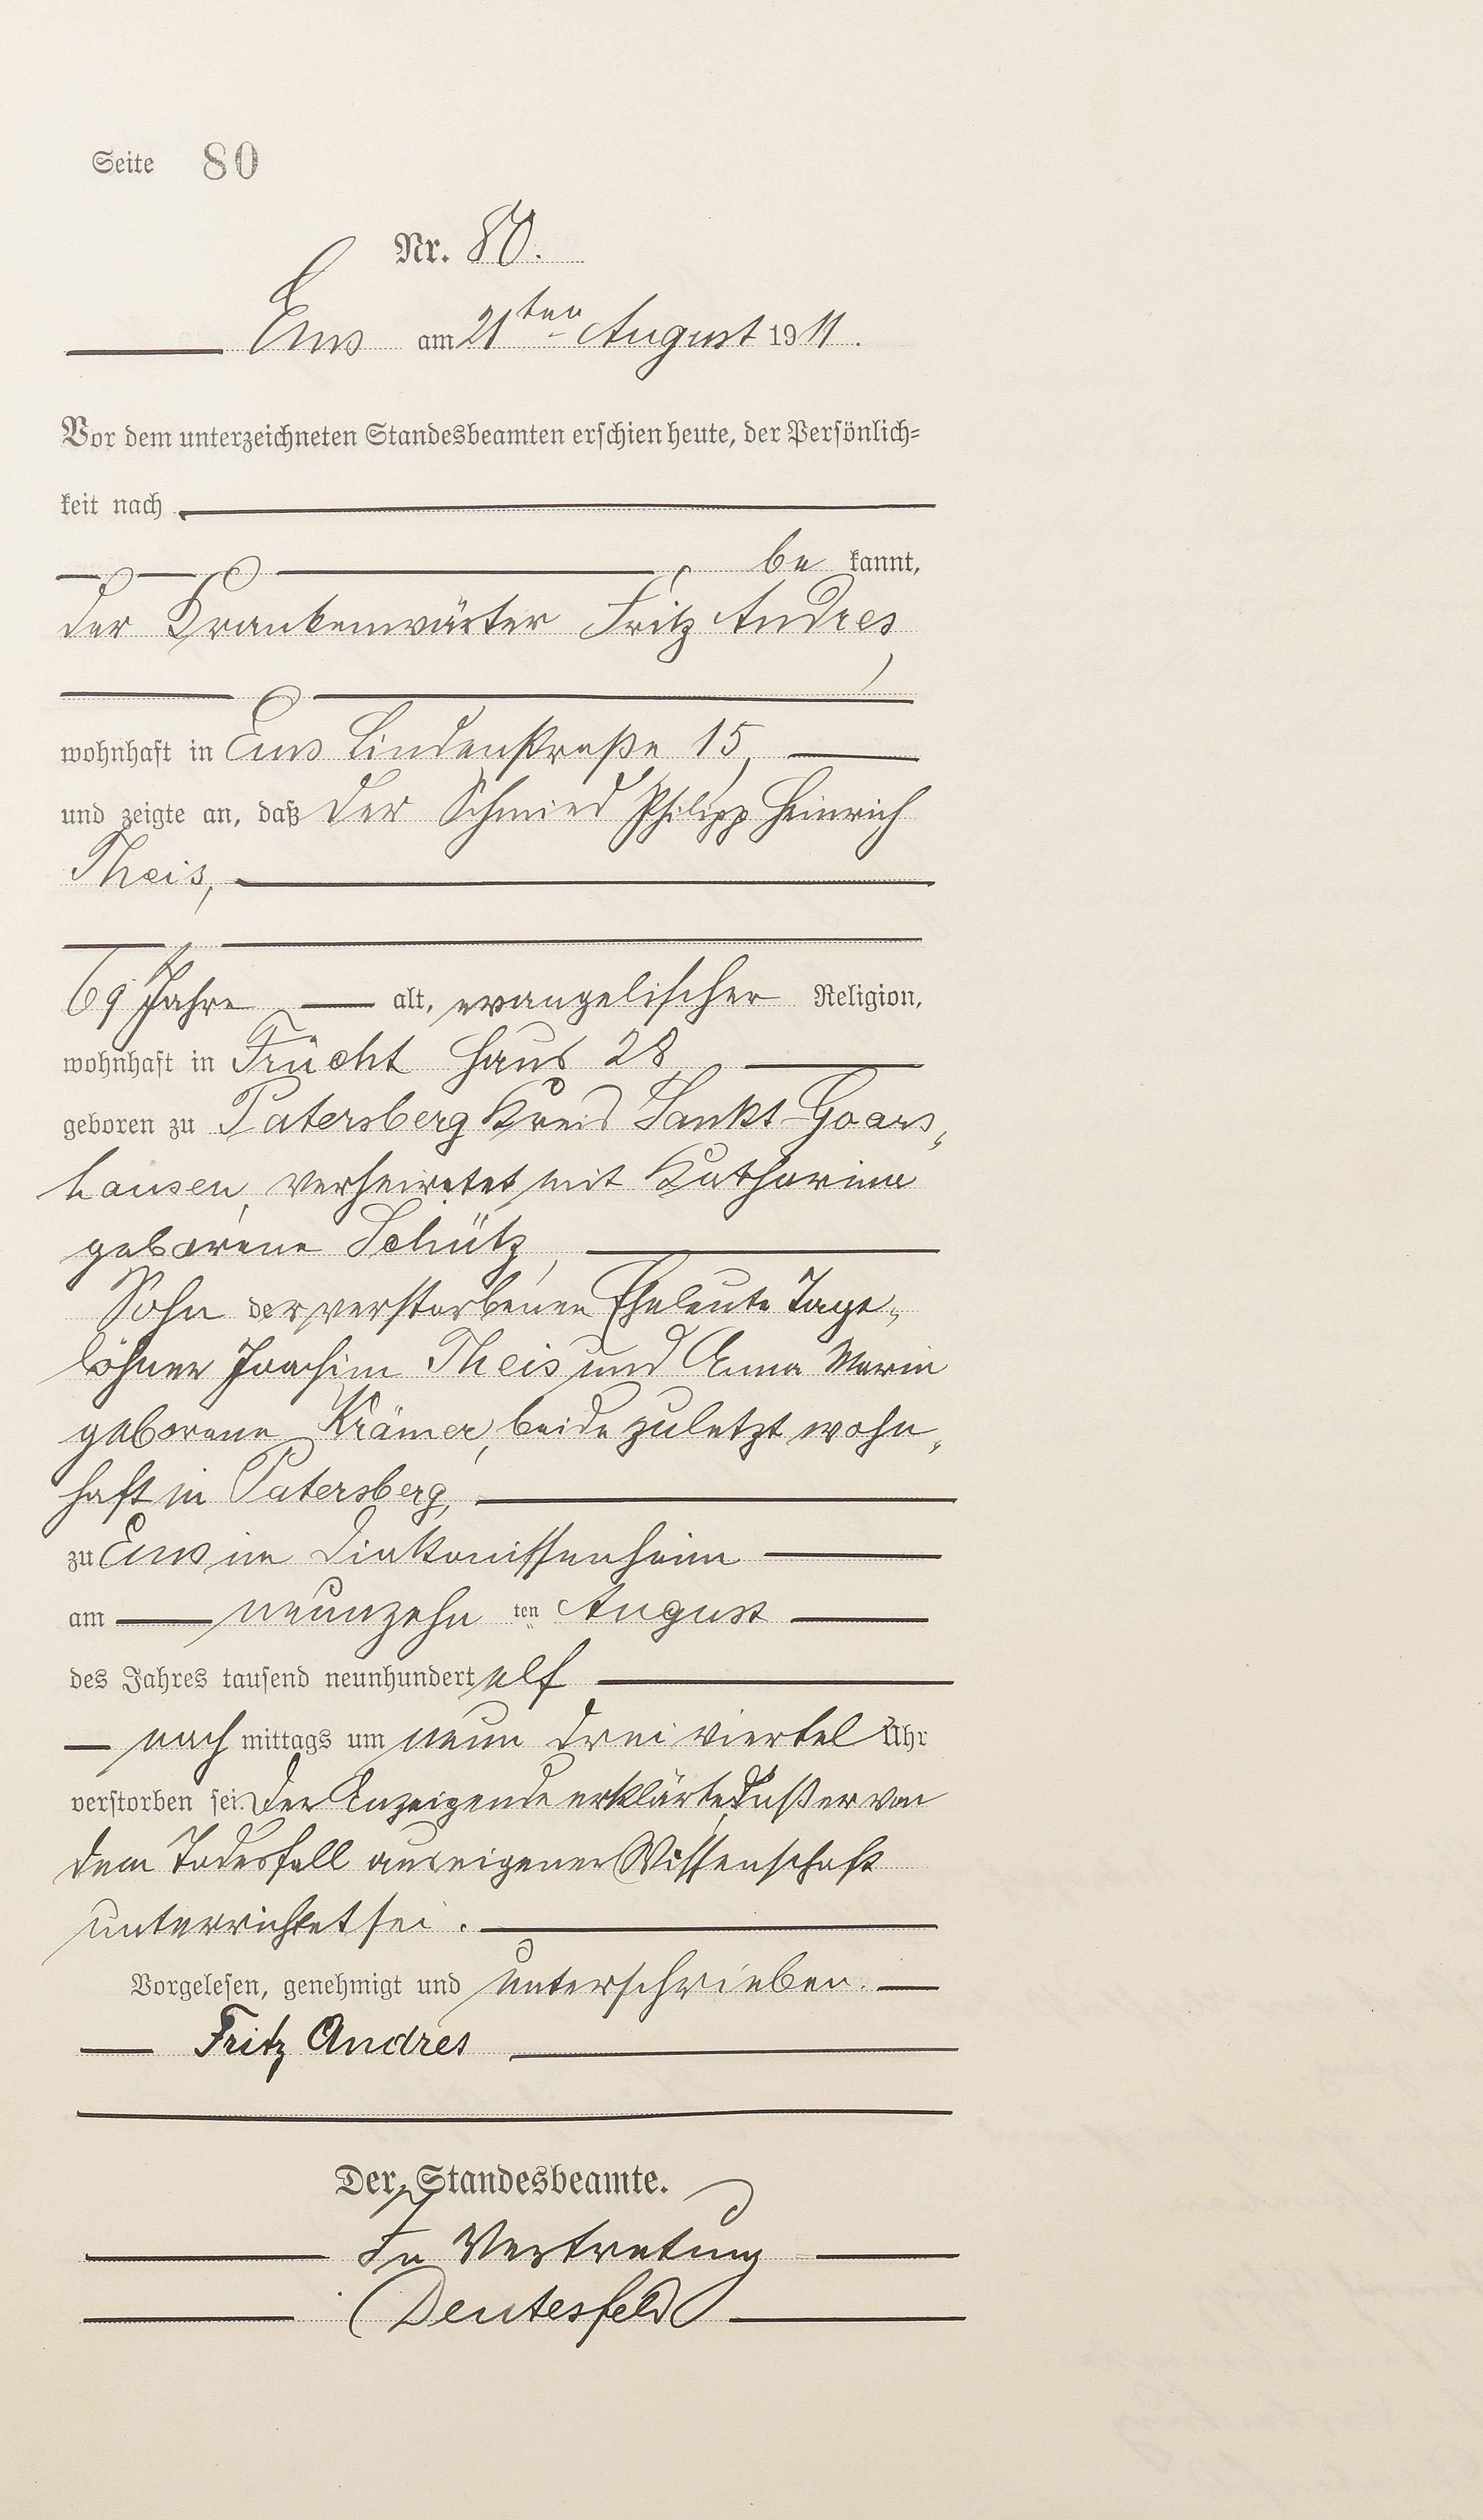 Seite 80
Nr. 80.
Ems am 21ten August 1911.
Vor dem unterzeichneten Standesbeamten erschien heute, der Persönlich-
keit nach
be kannt,
der Krankenwärter Fritz Andres,
wohnhaft in Ems Lindenstraße 15,
und zeigte an, daß der Schmied Philipp Heinrich
Theis,
69 Jahre alt, evangelischer Religion,
wohnhaft in Frücht Haus 28
geboren zu Patersberg Kreis Sankt-Goars„
hausen, verheiratet mit Katharina
geborene Schütz,
Sohn der verstorbenen Eheleute Tage„
löhner Joachim Theis und Anna Maria
geborene Krämer, beide zuletzt wohn„
haft in Patersberg,
zu Ems im Diakonissenheim
am neunzehn ten August
des Jahres tausend neunhundert elf
nach mittags um neun drei viertel Uhr
verstorben sei. Der Anzeigende erklärte, daß er von
dem Todesfall aus eigener Wissenschaft
unterrichtet sei.
Vorgelesen, genehmigt und unterschrieben.
Fritz Andres
Der Standesbeamte.
In Vertretung
Deutesfeld